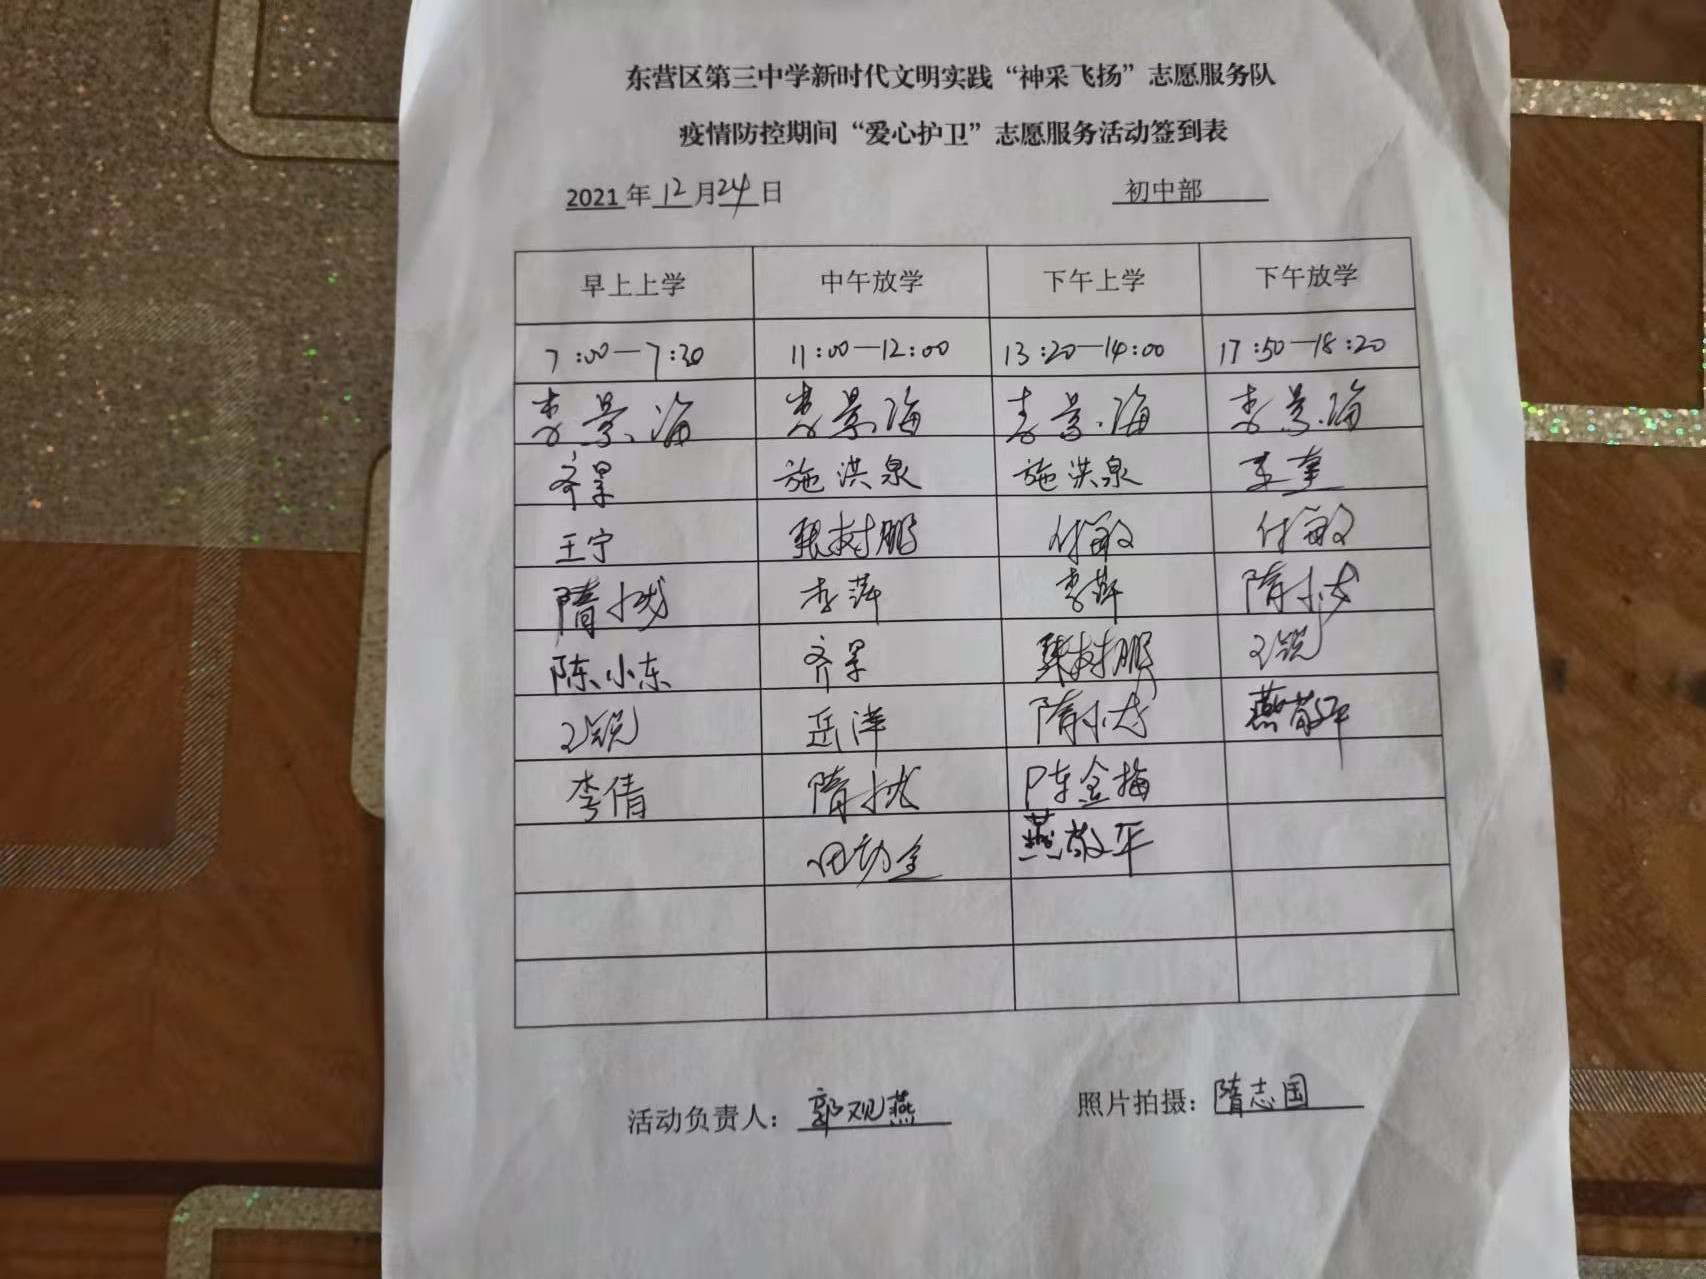 东营区第三中学新时代文明实践“神采飞扬”志愿服务队
疫情防控期间“爱心护卫”志愿服务活动签到表
2021年12月24日 初中部
早上上学 中午放学 下午上学 下午放学
7:00—7:30 11:00—12:00 13:20—14:00 17:50—18:20
李景海 李景海 李景海 李景海
齐景 施洪泉 施洪泉
王宁 张树鹏 付敏 付敏
隋 李萍 李萍 隋小龙
陈小东 齐景 张树鹏 王锐
王锐 岳洋 隋小龙 燕敬平
李倩 隋 陈金梅
田 燕敬平
活动负责人：郭观燕 照片拍摄：隋志国